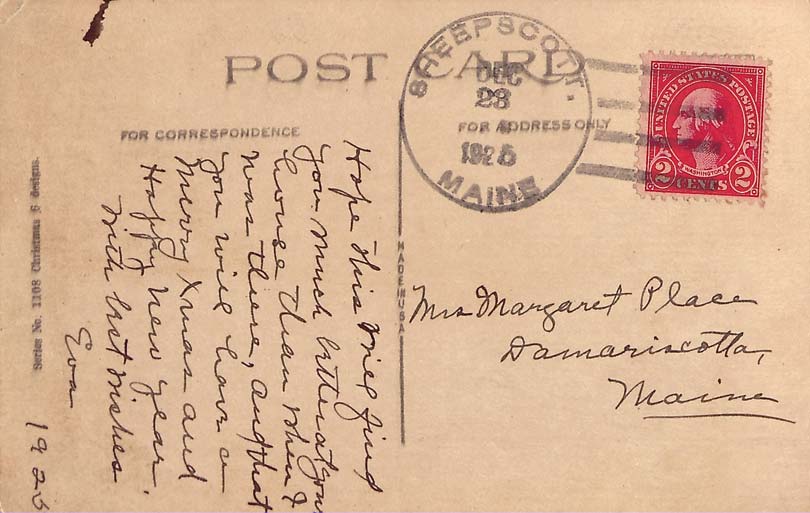 POST CARD
SHEEPSCOTT.
DEC
23
1925
MAINE
UNITED STATES POSTAGE
WASHINGTON
2 CENTS 2
FOR CORRESPONDENCE
FOR ADDRESS ONLY
Hope this will find
you much better at your
house than when I
was there, and that
you will have a
Merry Xmas and
Happy New Year.
With best wishes
Eva
1925
MADE IN USA
Mrs Margaret Place
Damariscotta,
Maine
Series No. 1108 Christmas 6 designs.